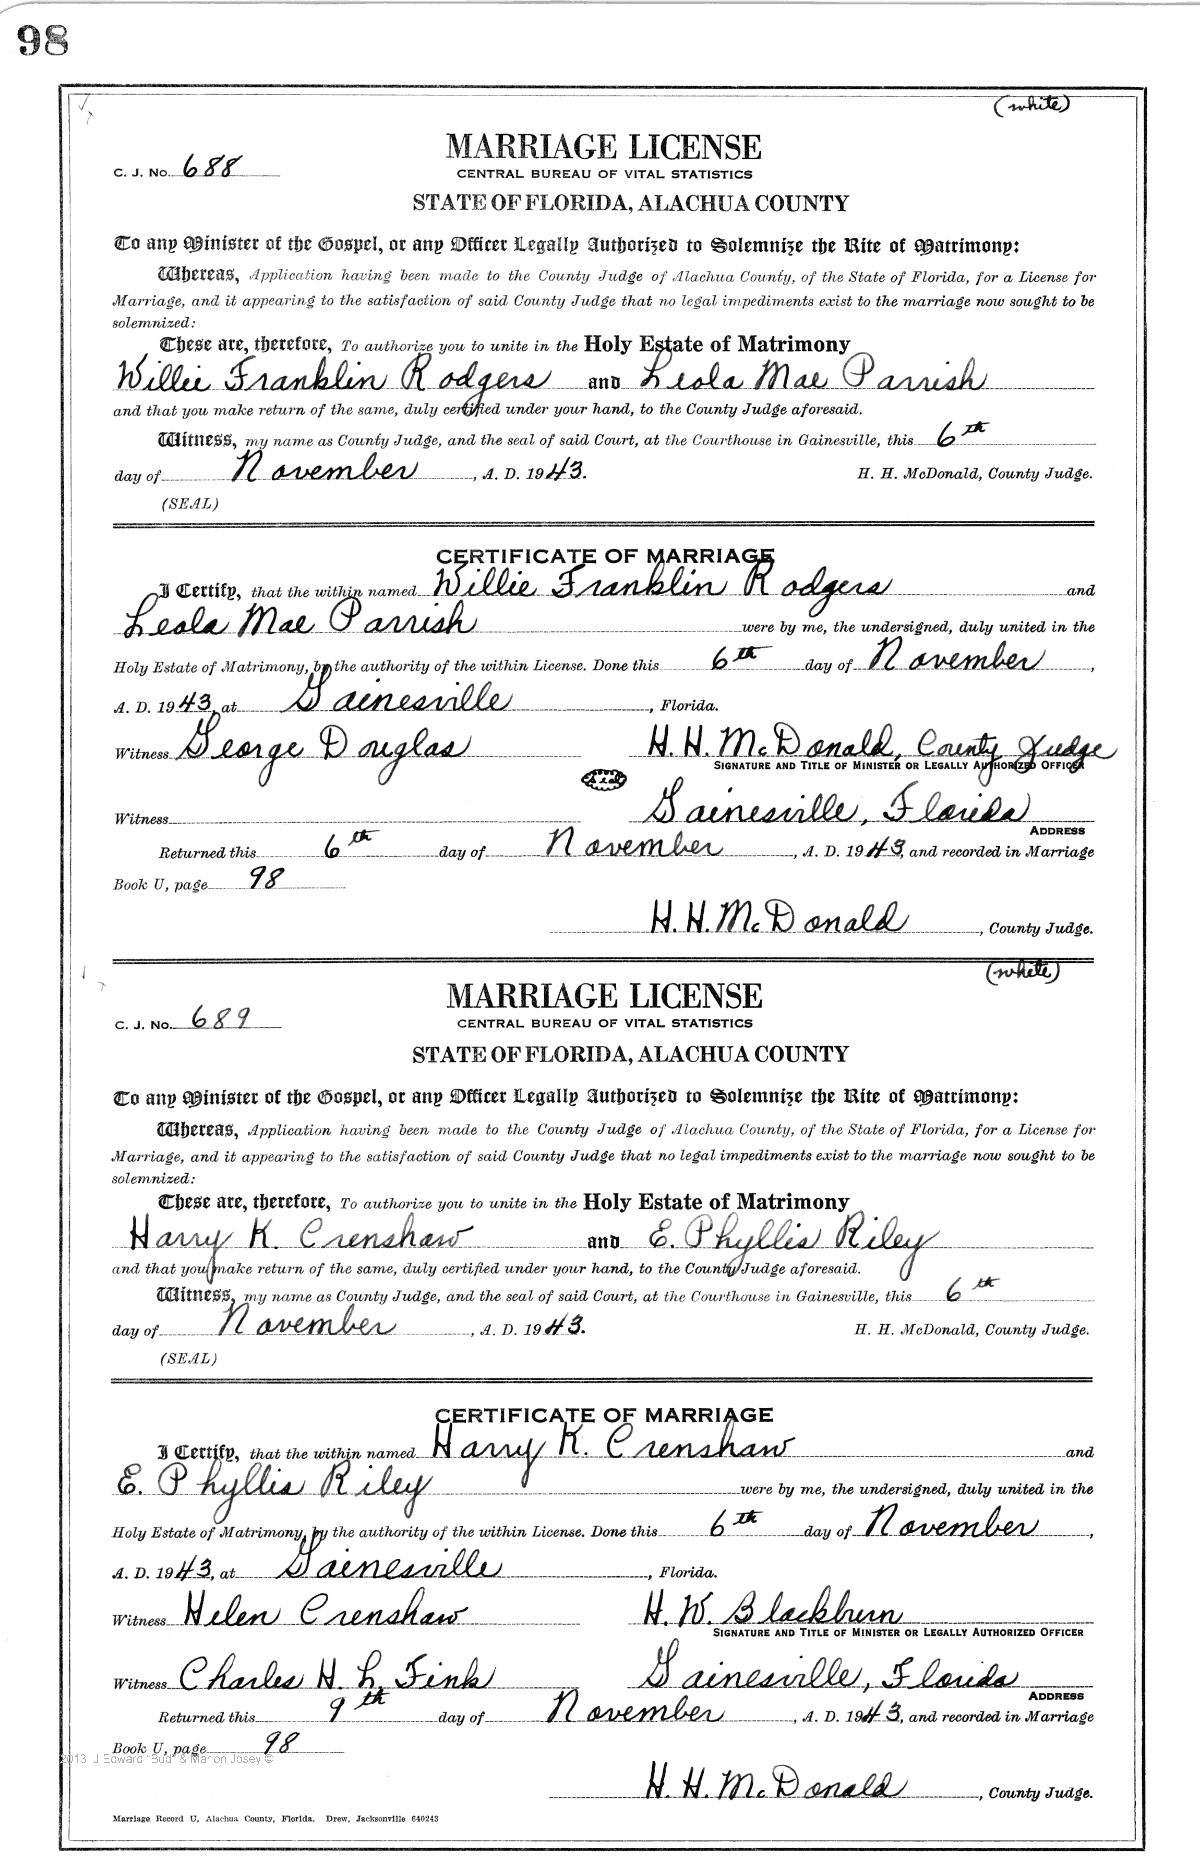 98
(white)
MARRIAGE LICENSE
C. J. No. 688
CENTRAL BUREAU OF VITAL STATISTICS
STATE OF FLORIDA, ALACHUA COUNTY
To any Minister of the Gospel, or any Officer Legally Authorized to Solemnize the Rite of Matrimony:
Whereas, Application having been made to the County Judge of Alachua County, of the State of Florida, for a License for
Marriage, and it appearing to the satisfaction of said County Judge that no legal impediments exist to the marriage now sought to be
solemnized:
These are, therefore, To authorize you to unite in the Holy Estate of Matrimony
Willie Franklin Rodgers and Leola Mae Parrish
and that you make return of the same, duly certified under your hand, to the County Judge aforesaid.
Witness, my name as County Judge, and the seal of said Court, at the Courthouse in Gainesville, this 6th
day of November, A. D. 1943. H. H. McDonald, County Judge.
(SEAL)
CERTIFICATE OF MARRIAGE
I Certify, that the within named Willie Franklin Rodgers and
Leola Mae Parrish were by me, the undersigned, duly united in the
Holy Estate of Matrimony, by the authority of the within License. Done this 6th day of November,
A. D. 1943, at Gainesville, Florida.
Witness George Douglas H. H. McDonald, County Judge
SIGNATURE AND TITLE OF MINISTER OR LEGALLY AUTHORIZED OFFICER
Seal
Witness Gainesville, Florida
ADDRESS
Returned this 6th day of November, A. D. 1943, and recorded in Marriage
Book U, page 98
H. H. McDonald, County Judge.
(white)
MARRIAGE LICENSE
C. J. No. 689
CENTRAL BUREAU OF VITAL STATISTICS
STATE OF FLORIDA, ALACHUA COUNTY
To any Minister of the Gospel, or any Officer Legally Authorized to Solemnize the Rite of Matrimony:
Whereas, Application having been made to the County Judge of Alachua County, of the State of Florida, for a License for
Marriage, and it appearing to the satisfaction of said County Judge that no legal impediments exist to the marriage now sought to be
solemnized:
These are, therefore, To authorize you to unite in the Holy Estate of Matrimony
Harry K. Crenshaw and E. Phyllis Riley
and that you make return of the same, duly certified under your hand, to the County Judge aforesaid.
Witness, my name as County Judge, and the seal of said Court, at the Courthouse in Gainesville, this 6th
day of November, A. D. 1943. H. H. McDonald, County Judge.
(SEAL)
CERTIFICATE OF MARRIAGE
I Certify, that the within named Harry K. Crenshaw and
E. Phyllis Riley were by me, the undersigned, duly united in the
Holy Estate of Matrimony, by the authority of the within License. Done this 6th day of November,
A. D. 1943, at Gainesville, Florida.
Witness Helen Crenshaw H. W. Blackburn
SIGNATURE AND TITLE OF MINISTER OR LEGALLY AUTHORIZED OFFICER
Witness Charles H. L. Fink Gainesville, Florida
ADDRESS
Returned this 9th day of November, A. D. 1943, and recorded in Marriage
Book U, page 98
2013 J Edward "Bud" & Marion Josey ©
H. H. McDonald, County Judge.
Marriage Record U, Alachua County, Florida. Drew, Jacksonville 640243